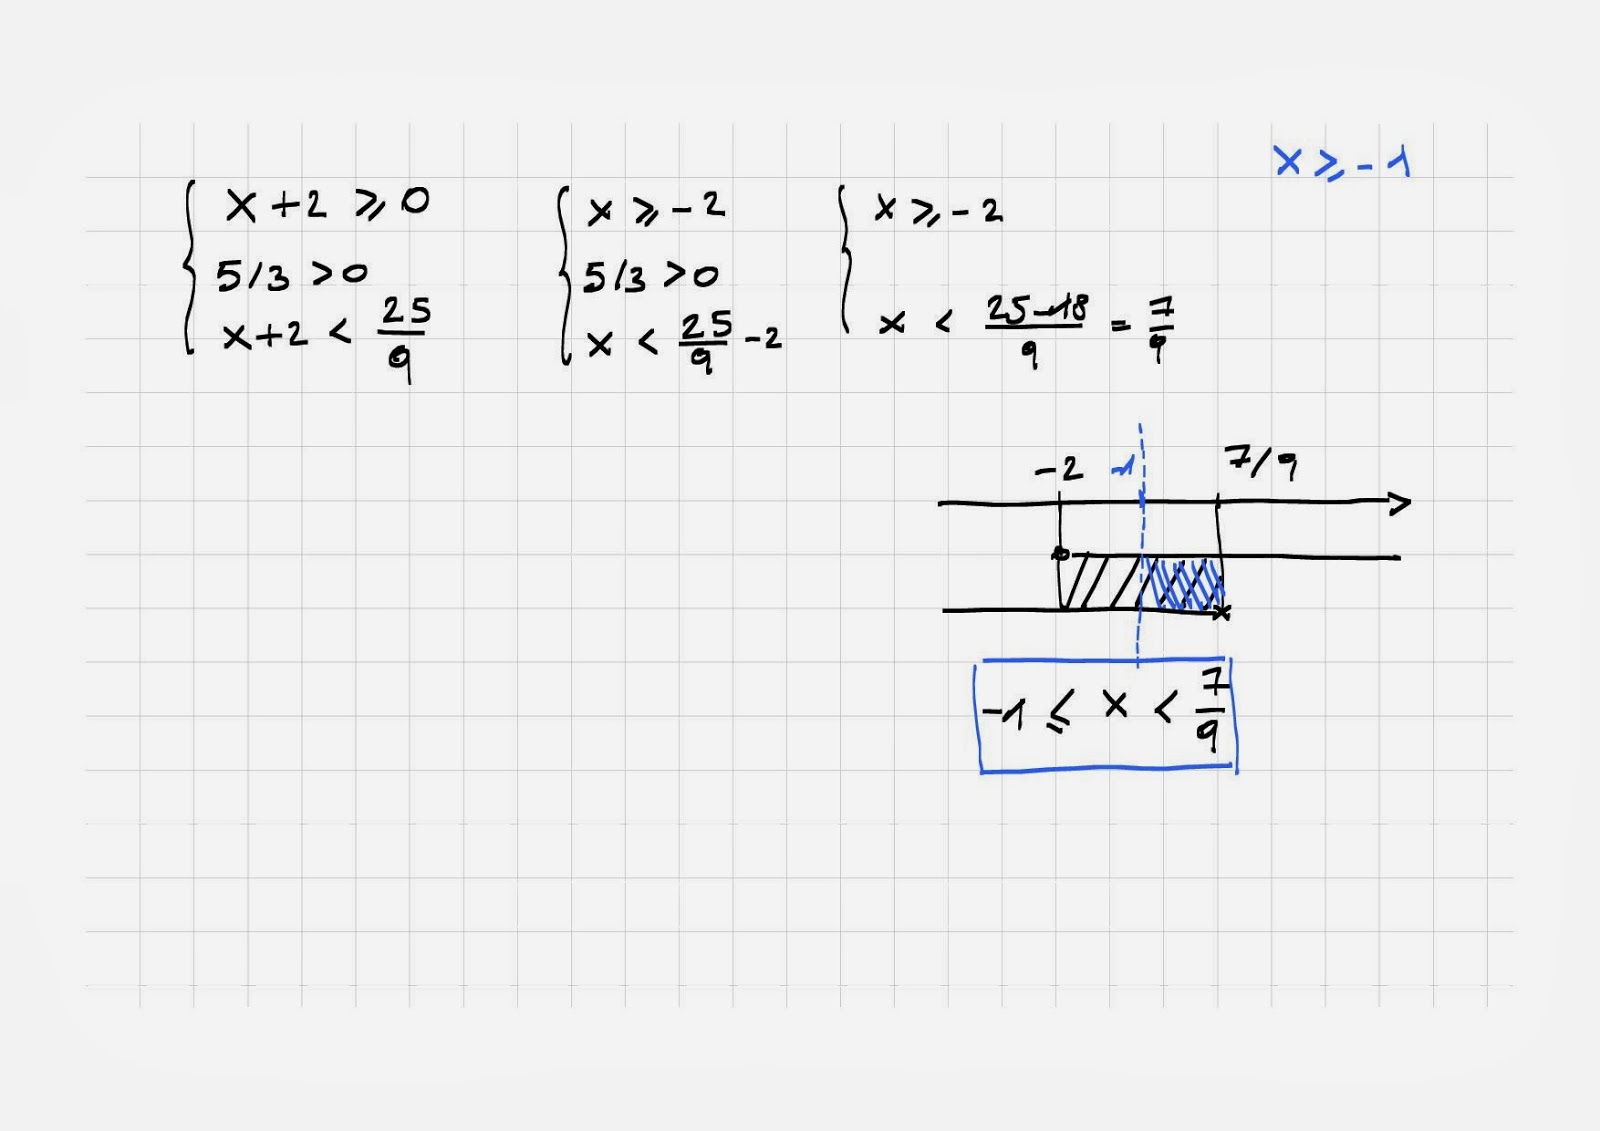 x ⩾ -1
x + 2 ⩾ 0
5/3 > 0
x + 2 < 25/9
x ⩾ -2
5/3 > 0
x < 25/9 - 2
x ⩾ -2
x < (25-18)/9 = 7/9
-2 -1 7/9
-1 ≤ x < 7/9